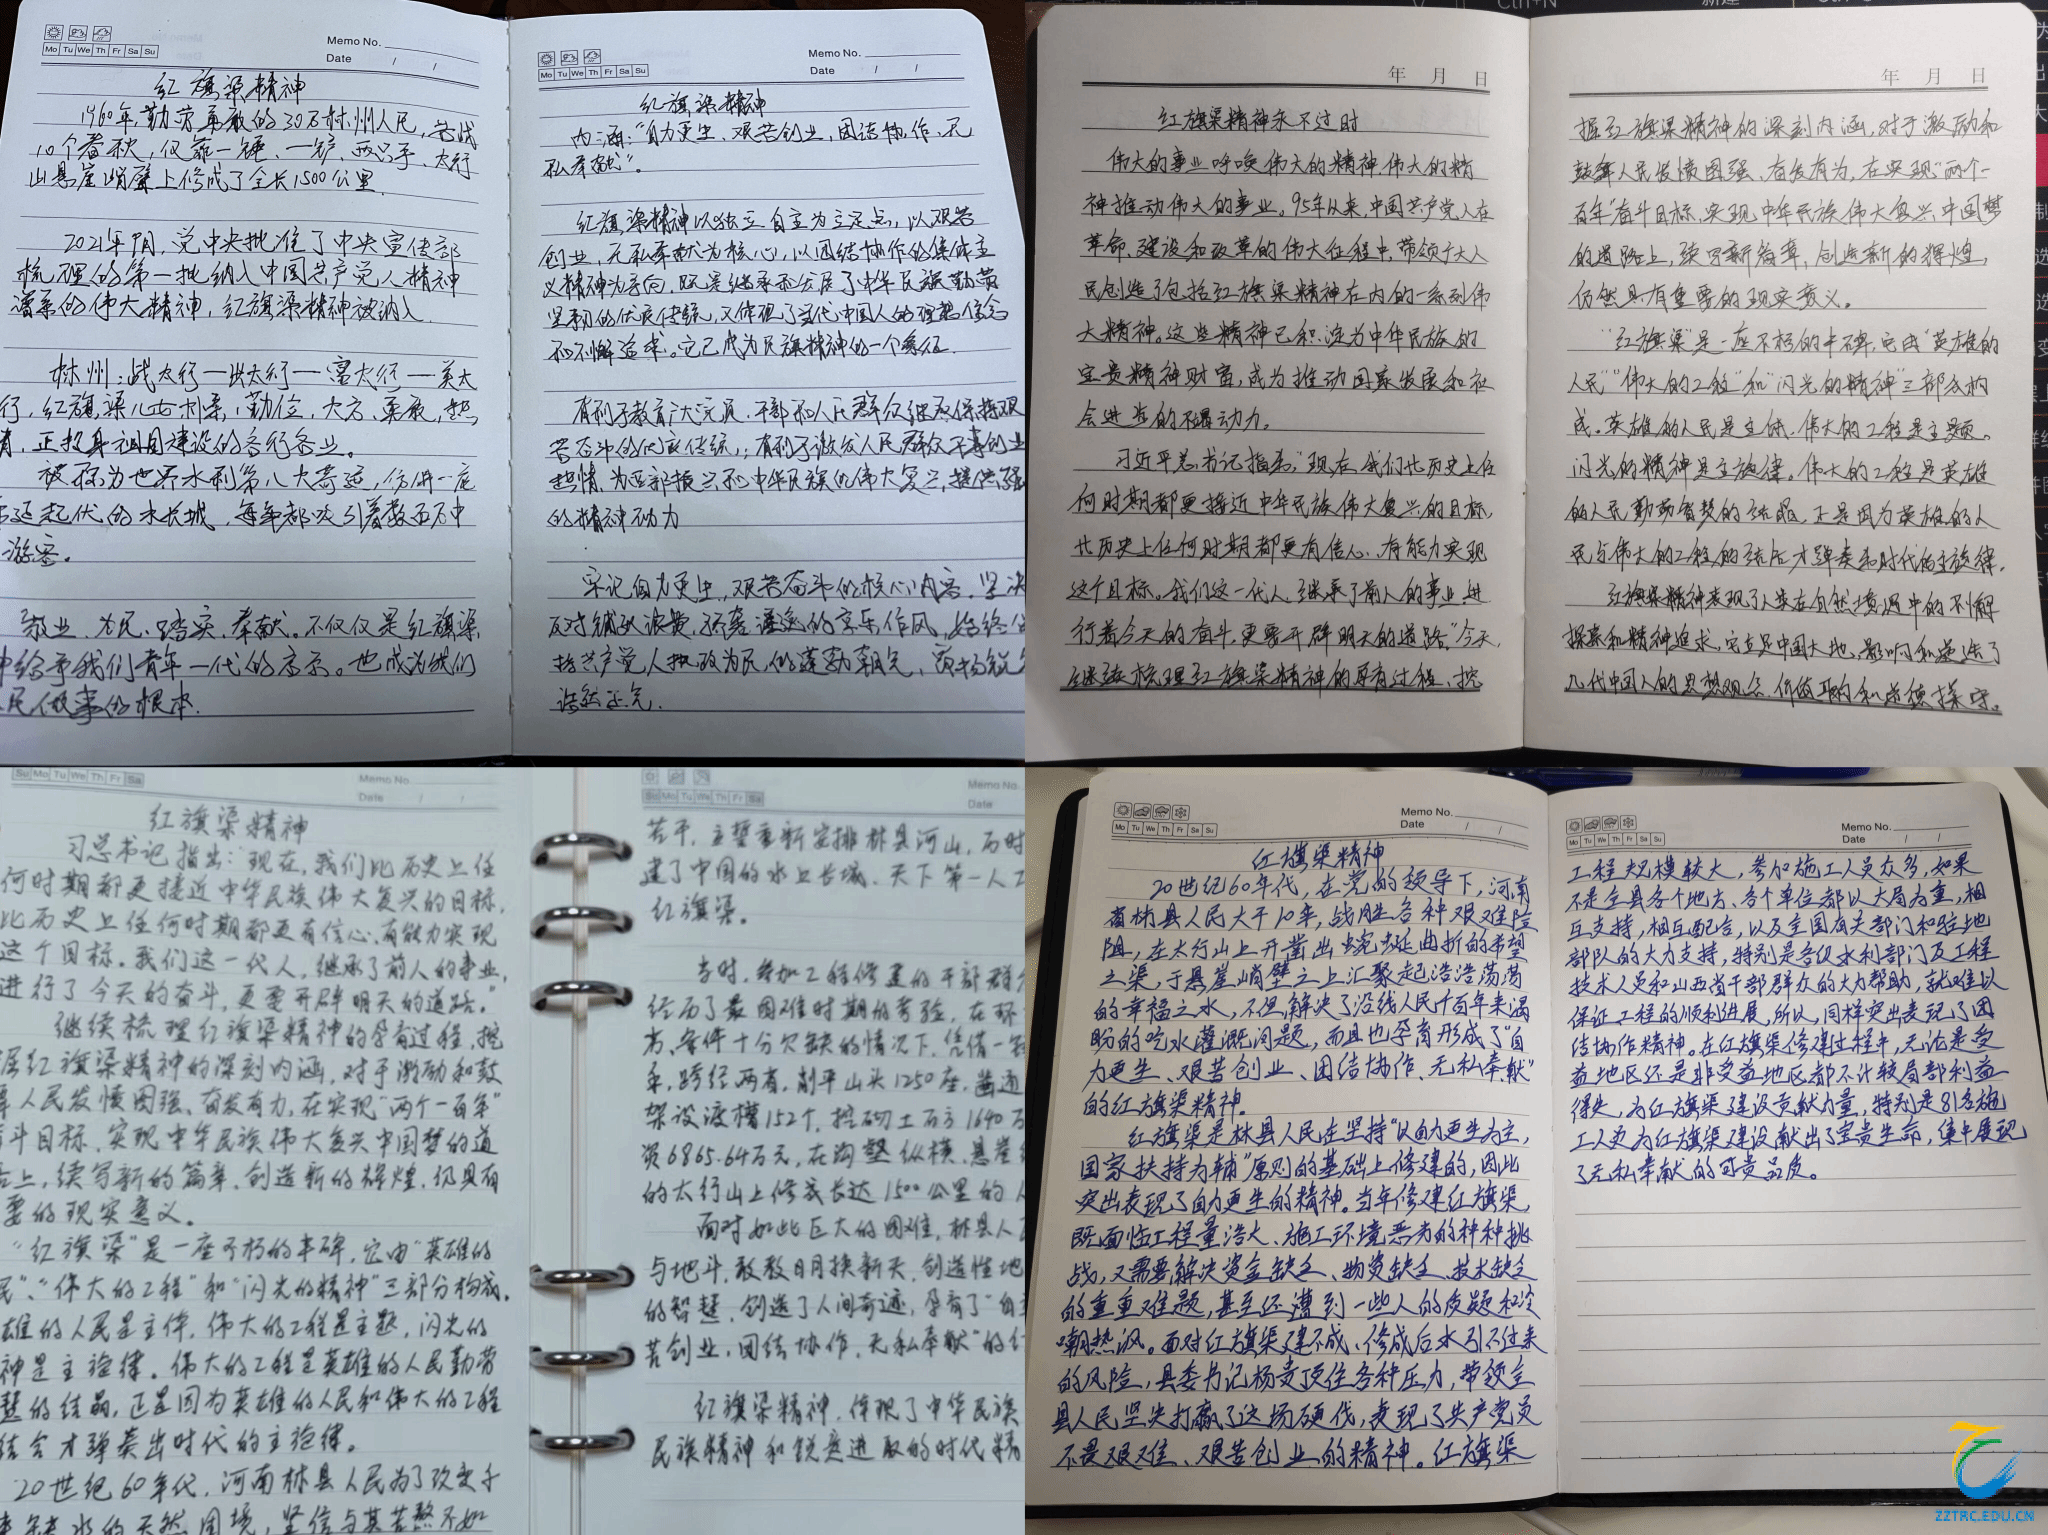 Mo Tu We Th Fr Sa Su
Memo No.
Date / /
红旗渠精神
1960年,勤劳勇敢的30万林州人民,苦战
10个春秋,仅靠一锤、一铲、两只手,太行
山悬崖峭壁上修成了全长1500公里
2021年9月,党中央批准了中央宣传部
梳理的第一批纳入中国共产党人精神
谱系的伟大精神,红旗渠精神被纳入
林州:战太行一出太行一富太行一美太
行,红旗渠儿女
正投身祖国建设的各行各业。
被称为世界水利第八大奇迹,
起伏的水长城,每年都吸引着数百万中
游客。
敬业、为民、踏实、奉献。不仅仅是红旗渠
给予我们青年一代的启示。也成为我们
民做事的根本.
Mo Tu We Th Fr Sa Su
Memo No.
Date / /
红旗渠精神
内涵:“自力更生、艰苦创业,团结协作、无
私奉献”。
红旗渠精神以独立自主为立足点,以艰苦
创业,无私奉献为核心,以团结协作的集体主
义精神为导向,既是继承和发展了中华民族勤劳
坚韧的优良传统,又体现了当代中国人的理想信念
和不懈追求。它已成为民族精神的一个象征.
有利于教育广大党员、干部和人民群众继承保持艰
苦奋斗的优良传统,;有利于激发人民群众干事创业
热情,为 振兴和中华民族的伟大复兴,提供强
的精神动力
牢记自力更生,艰苦奋斗的核心内容.坚决
反对铺张浪费, 的享乐作风,始终保
持共产党人执政为民的蓬勃朝气,
浩然正气.
年 月 日
红旗渠精神永不过时
伟大的事业呼唤伟大的精神,伟大的精
神推动伟大的事业。95年以来,中国共产党人在
革命、建设和改革的伟大征程中,带领广大人
民创造了包括红旗渠精神在内的一系列伟
大精神。这些精神已积淀为中华民族的
宝贵精神财富,成为推动国家发展和社
会进步的不竭动力。
习近平总书记指示,“现在,我们比历史上任
何时期都更接近中华民族伟大复兴的目标,
比历史上任何时期都更有信心、有能力实现
这个目标。我们这一代人,继承了前人的事业,进
行着今天的奋斗,更要开辟明天的道路。”今天,
继续梳理红旗渠精神的孕育过程、挖
年 月 日
掘红旗渠精神的深刻内涵,对于激励和
鼓舞人民发愤图强、奋发有为,在实现“两个一
百年”奋斗目标、实现中华民族伟大复兴,中国梦
的道路上,续写新篇章,创造新的辉煌,
仍然具有重要的现实意义。
“红旗渠”是一座不朽的丰碑,它由“英雄的
人民”“伟大的工程”和“闪光的精神”三部分构
成。英雄的人民是主体,伟大的工程是主题。
闪光的精神是主旋律。伟大的工程是英雄
的人民勤劳智慧的结晶,正是因为英雄的人
民与伟大的工程的结合,才弹奏出时代的主旋律,
红旗渠精神表现了人类在自然境遇中的不懈
探索和精神追求,它立足中国大地,影响和
几代中国人的思想观念、价值取向和道德操守。
Su Mo Tu We Th Fr Sa
Memo No
Date / /
红旗渠精神
习总书记指出:“现在,我们比历史上任
何时期都更接近中华民族伟大复兴的目标,
比历史上任何时期都更有信心、有能力实现
这个目标。我们这一代人,继承了前人的事业,
进行了今天的奋斗,更要开辟明天的道路。”
继续梳理红旗渠精神的孕育过程,挖
掘红旗渠精神的深刻内涵,对于激励和鼓
舞人民发愤图强、奋发有力,在实现“两个一百年”
奋斗目标、实现中华民族伟大复兴中国梦的道
路上,续写新的篇章、创造新的辉煌,仍具有
要的现实意义。
“红旗渠”是一座不朽的丰碑,它由“英雄的
民”、“伟大的工程”和“闪光的精神”三部分构成。
雄的人民是主体,伟大的工程是主题,闪光的
神是主旋律。伟大的工程是英雄的人民勤劳
慧的结晶,正是因为英雄的人民和伟大的工程
结合才弹奏出时代的主旋律。
20世纪60年代,河南林县人民为了改变千
缺水的天然困境,坚信与其苦熬不如
Su Mo Tu We Th Fr Sa
Memo No.
Date /
苦干,主誓重新安排林县河山,历时
建了中国的水上长城、天下第一人工
红旗渠。
当时,参加工程修建的干部群众
经历了最困难时期的考验,在环
方、条件十分欠缺的情况下,凭借一
跨经两省,削平山头1250座,凿通
架设渡槽152个,挖砌土石方1640万
资6865.64万元,在沟壑纵横、悬崖
的太行山上修成长达1500公里的人
面对如此巨大的困难,林县人民
与地斗,敢教日月换新天,创造性地
的智慧,创造了人间奇迹,孕育了“自
苦创业,团结协作,无私奉献”的
红旗渠精神,体现了中华民族
民族精神和锐意进取的时代精
Mo Tu We Th Fr Sa Su
Memo No.
Date / /
红旗渠精神
20世纪60年代,在党的领导下,河南
省林县人民大干10年,战胜各种艰难险
阻,在太行山上开凿出蜿蜒曲折的希望
之渠,于悬崖峭壁之上汇聚起浩浩荡荡
的幸福之水,不但解决了沿线人民千百年来渴
盼的吃水灌溉问题,而且也孕育形成了“自
力更生、艰苦创业、团结协作、无私奉献”
的红旗渠精神。
红旗渠是林县人民在坚持“以自力更生为主,
国家扶持为辅”原则的基础上修建的,因此
突出表现了自力更生的精神。当年修建红旗渠,
既面临工程量浩大、施工环境恶劣的种种挑
战,又需要解决资金缺乏、物资缺乏、技术缺乏
的重重难题,甚至还遭到一些人的质疑和冷
嘲热讽。面对红旗渠建不成、修成后水引不过来
的风险,县委书记杨贵顶住各种压力,带领全
县人民坚决打赢了这场硬仗,表现了共产党员
不畏艰难、艰苦创业的精神。红旗渠
Mo Tu We Th Fr Sa Su
Memo No.
Date / /
工程规模较大,参加施工人员众多,如果
不是全县各个地方、各个单位都以大局为重,相
互支持,相互配合,以及全国有关部门和驻地
部队的大力支持,特别是各级水利部门及工程
技术人员和山西省干部群众的大力帮助,就难以
保证工程的顺利进展,所以,同样突出表现了团
结协作精神。在红旗渠修建过程中,无论是受
益地区还是非受益地区都不计较局部利益
得失,为红旗渠建设贡献力量,特别是81名施
工人员为红旗渠建设献出了宝贵生命,集中展现
了无私奉献的可贵品质。
ZZTRC.EDU.CN